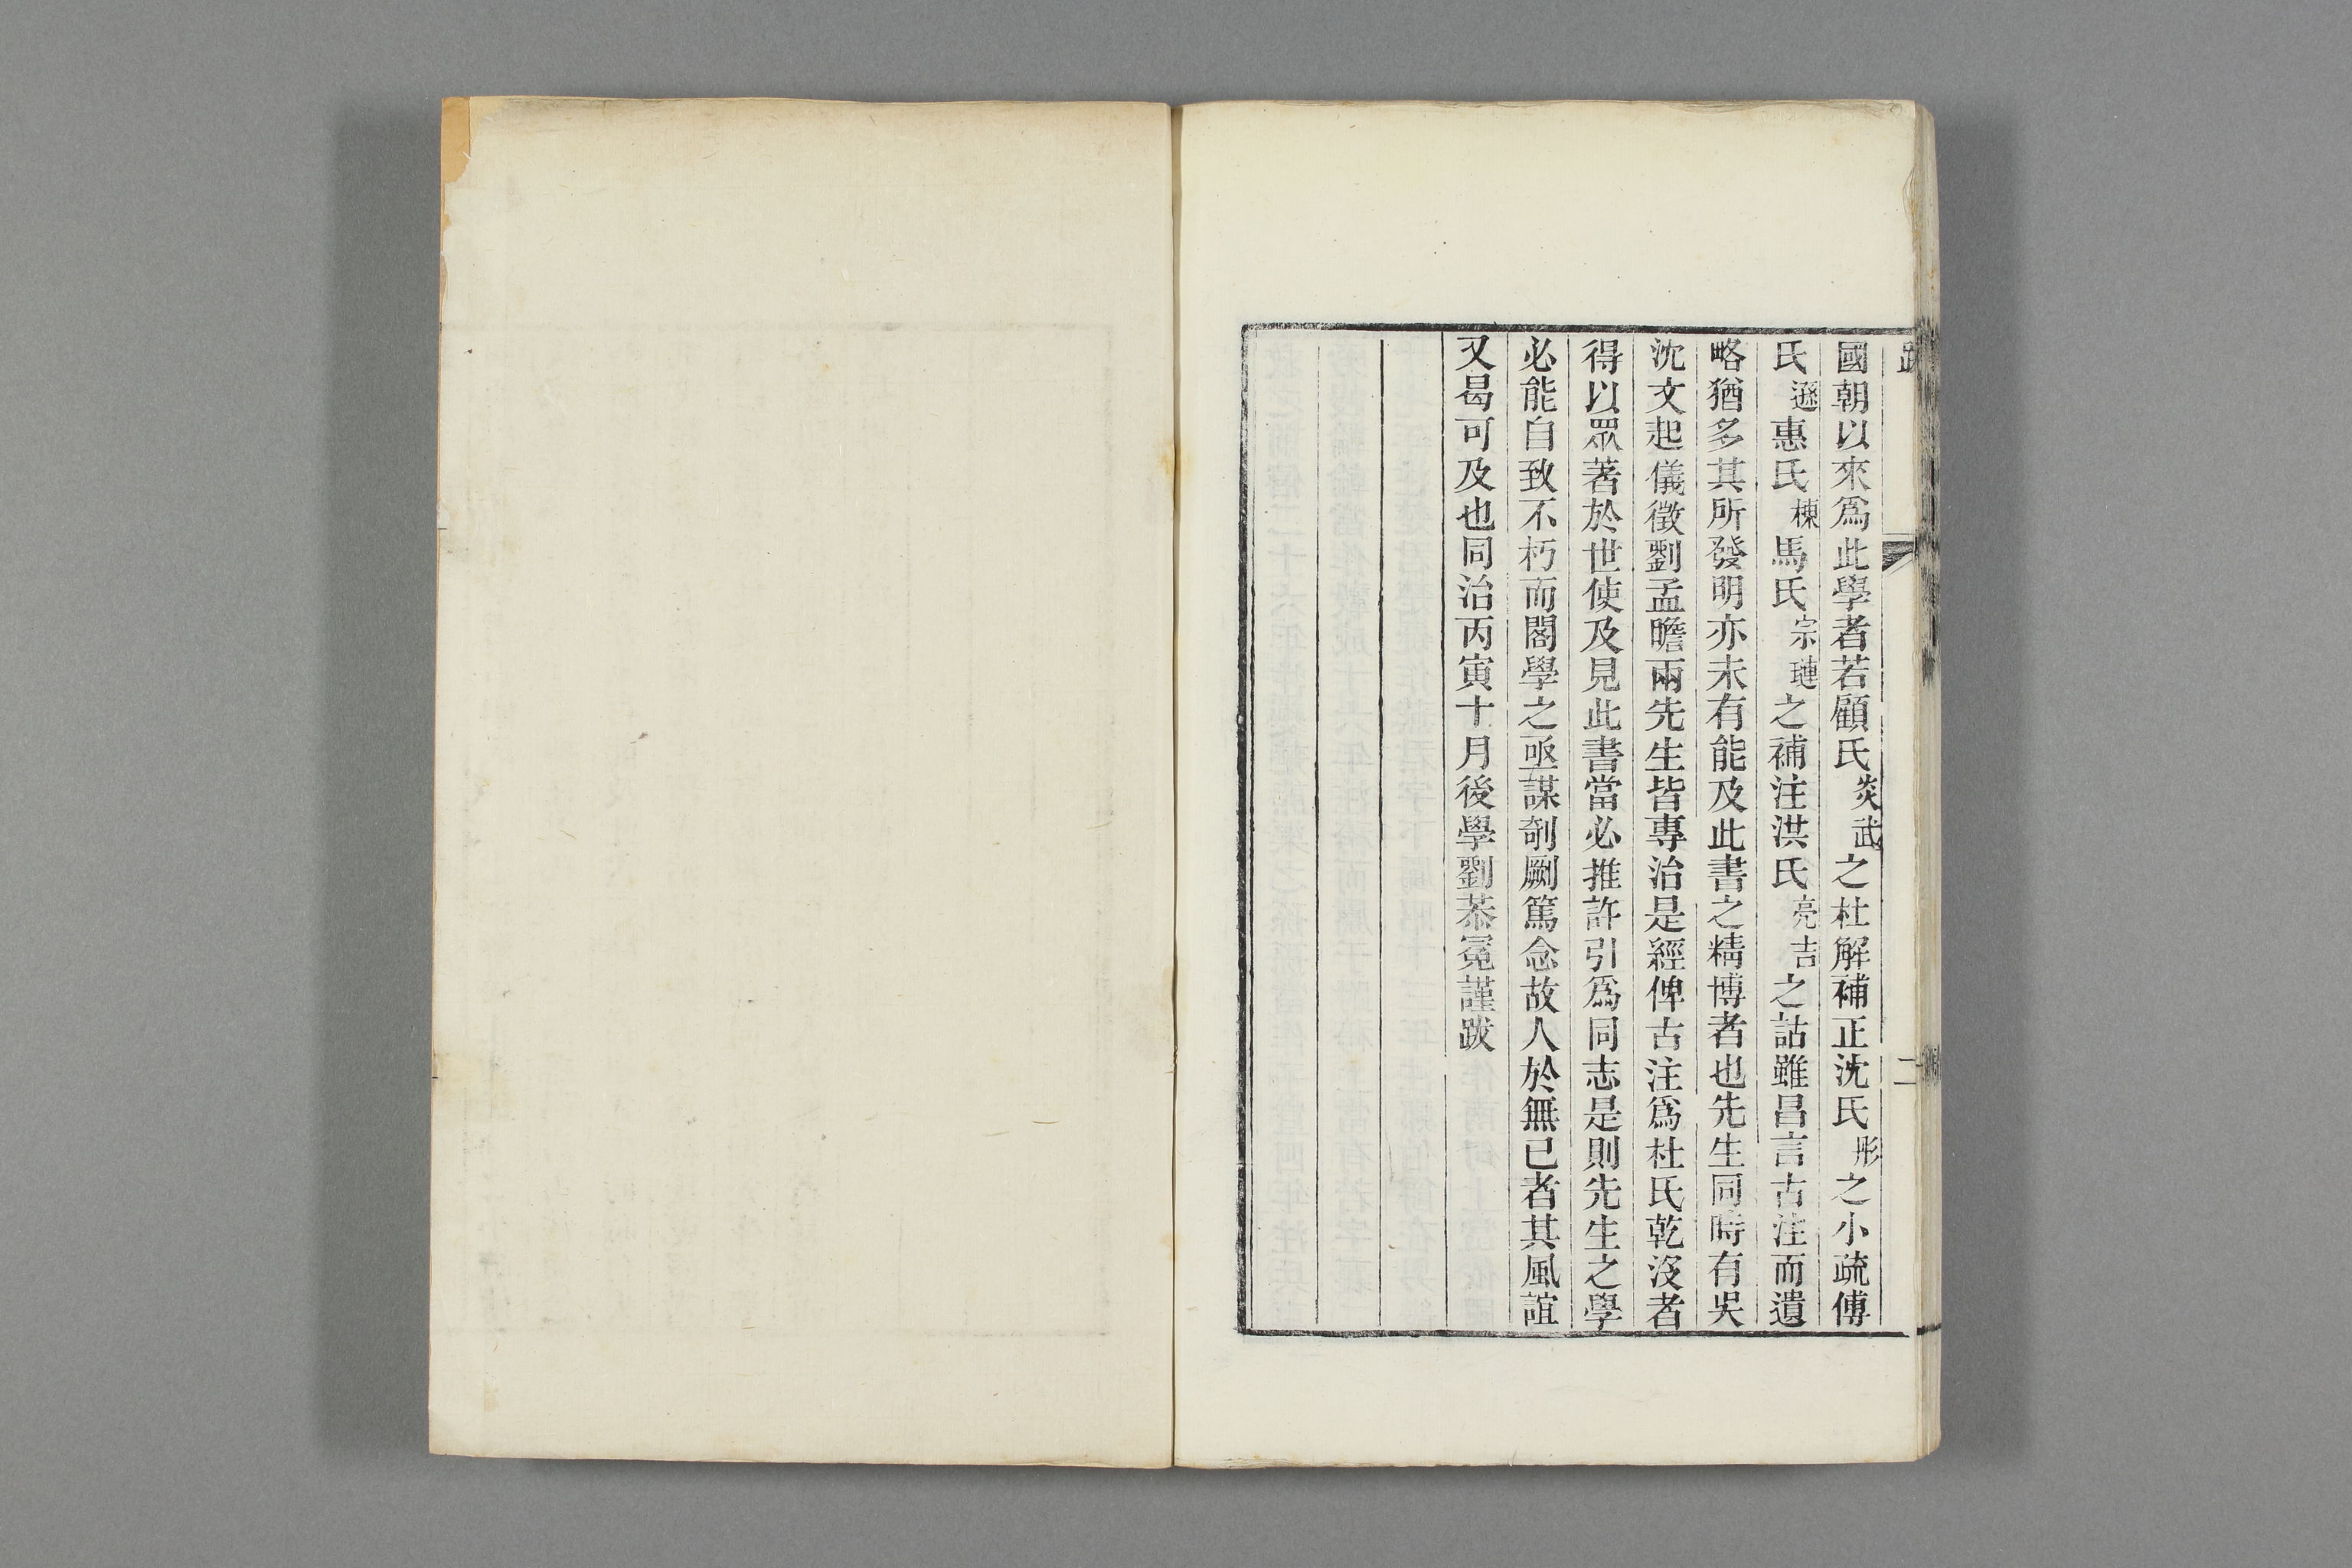 國朝以來爲此學者若顧氏炎武之杜解補正沈氏彤之小疏傅
氏遜惠氏棟馬氏宗璉之補注洪氏亮吉之詁雖昌言古注而遺
略猶多其所發明亦未有能及此書之精博者也先生同時有吳
沈文起儀徵劉孟瞻兩先生皆專治是經俾古注爲杜氏乾沒者
得以眾著於世使及見此書當必推許引爲同志是則先生之學
必能自致不朽而閣學之亟謀剞劂篤念故人於無已者其風誼
又曷可及也同治丙寅十月後學劉恭冕謹跋
二